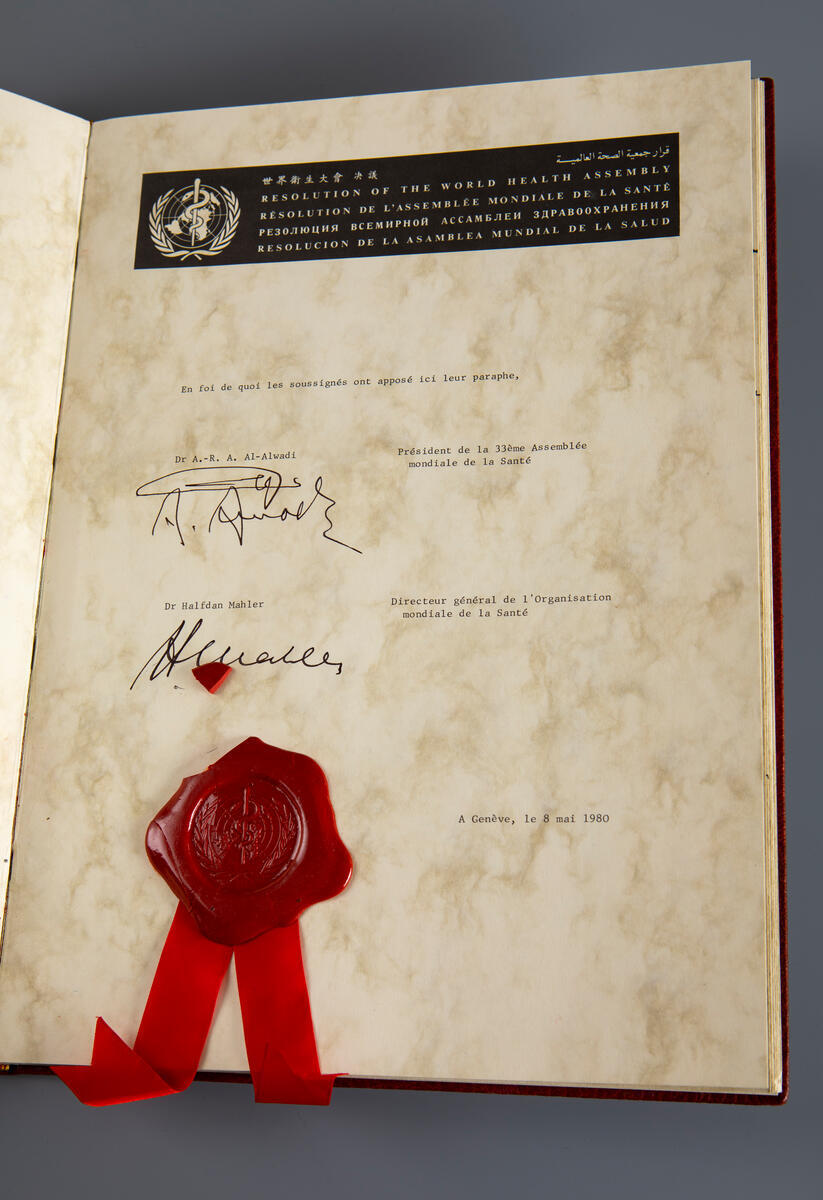 قرار جمعية الصحة العالميـــة
世界衛生大會 决議
RESOLUTION OF THE WORLD HEALTH ASSEMBLY
RÉSOLUTION DE L'ASSEMBLÉE MONDIALE DE LA SANTÉ
РЕЗОЛЮЦИЯ ВСЕМИРНОЙ АССАМБЛЕИ ЗДРАВООХРАНЕНИЯ
RESOLUCION DE LA ASAMBLEA MUNDIAL DE LA SALUD
En foi de quoi les soussignés ont apposé ici leur paraphe,
Dr A.-R. A. Al-Alwadi
Président de la 33ème Assemblée
mondiale de la Santé
Dr Halfdan Mahler
Directeur général de l'Organisation
mondiale de la Santé
H Mahler
A Genève, le 8 mai 1980